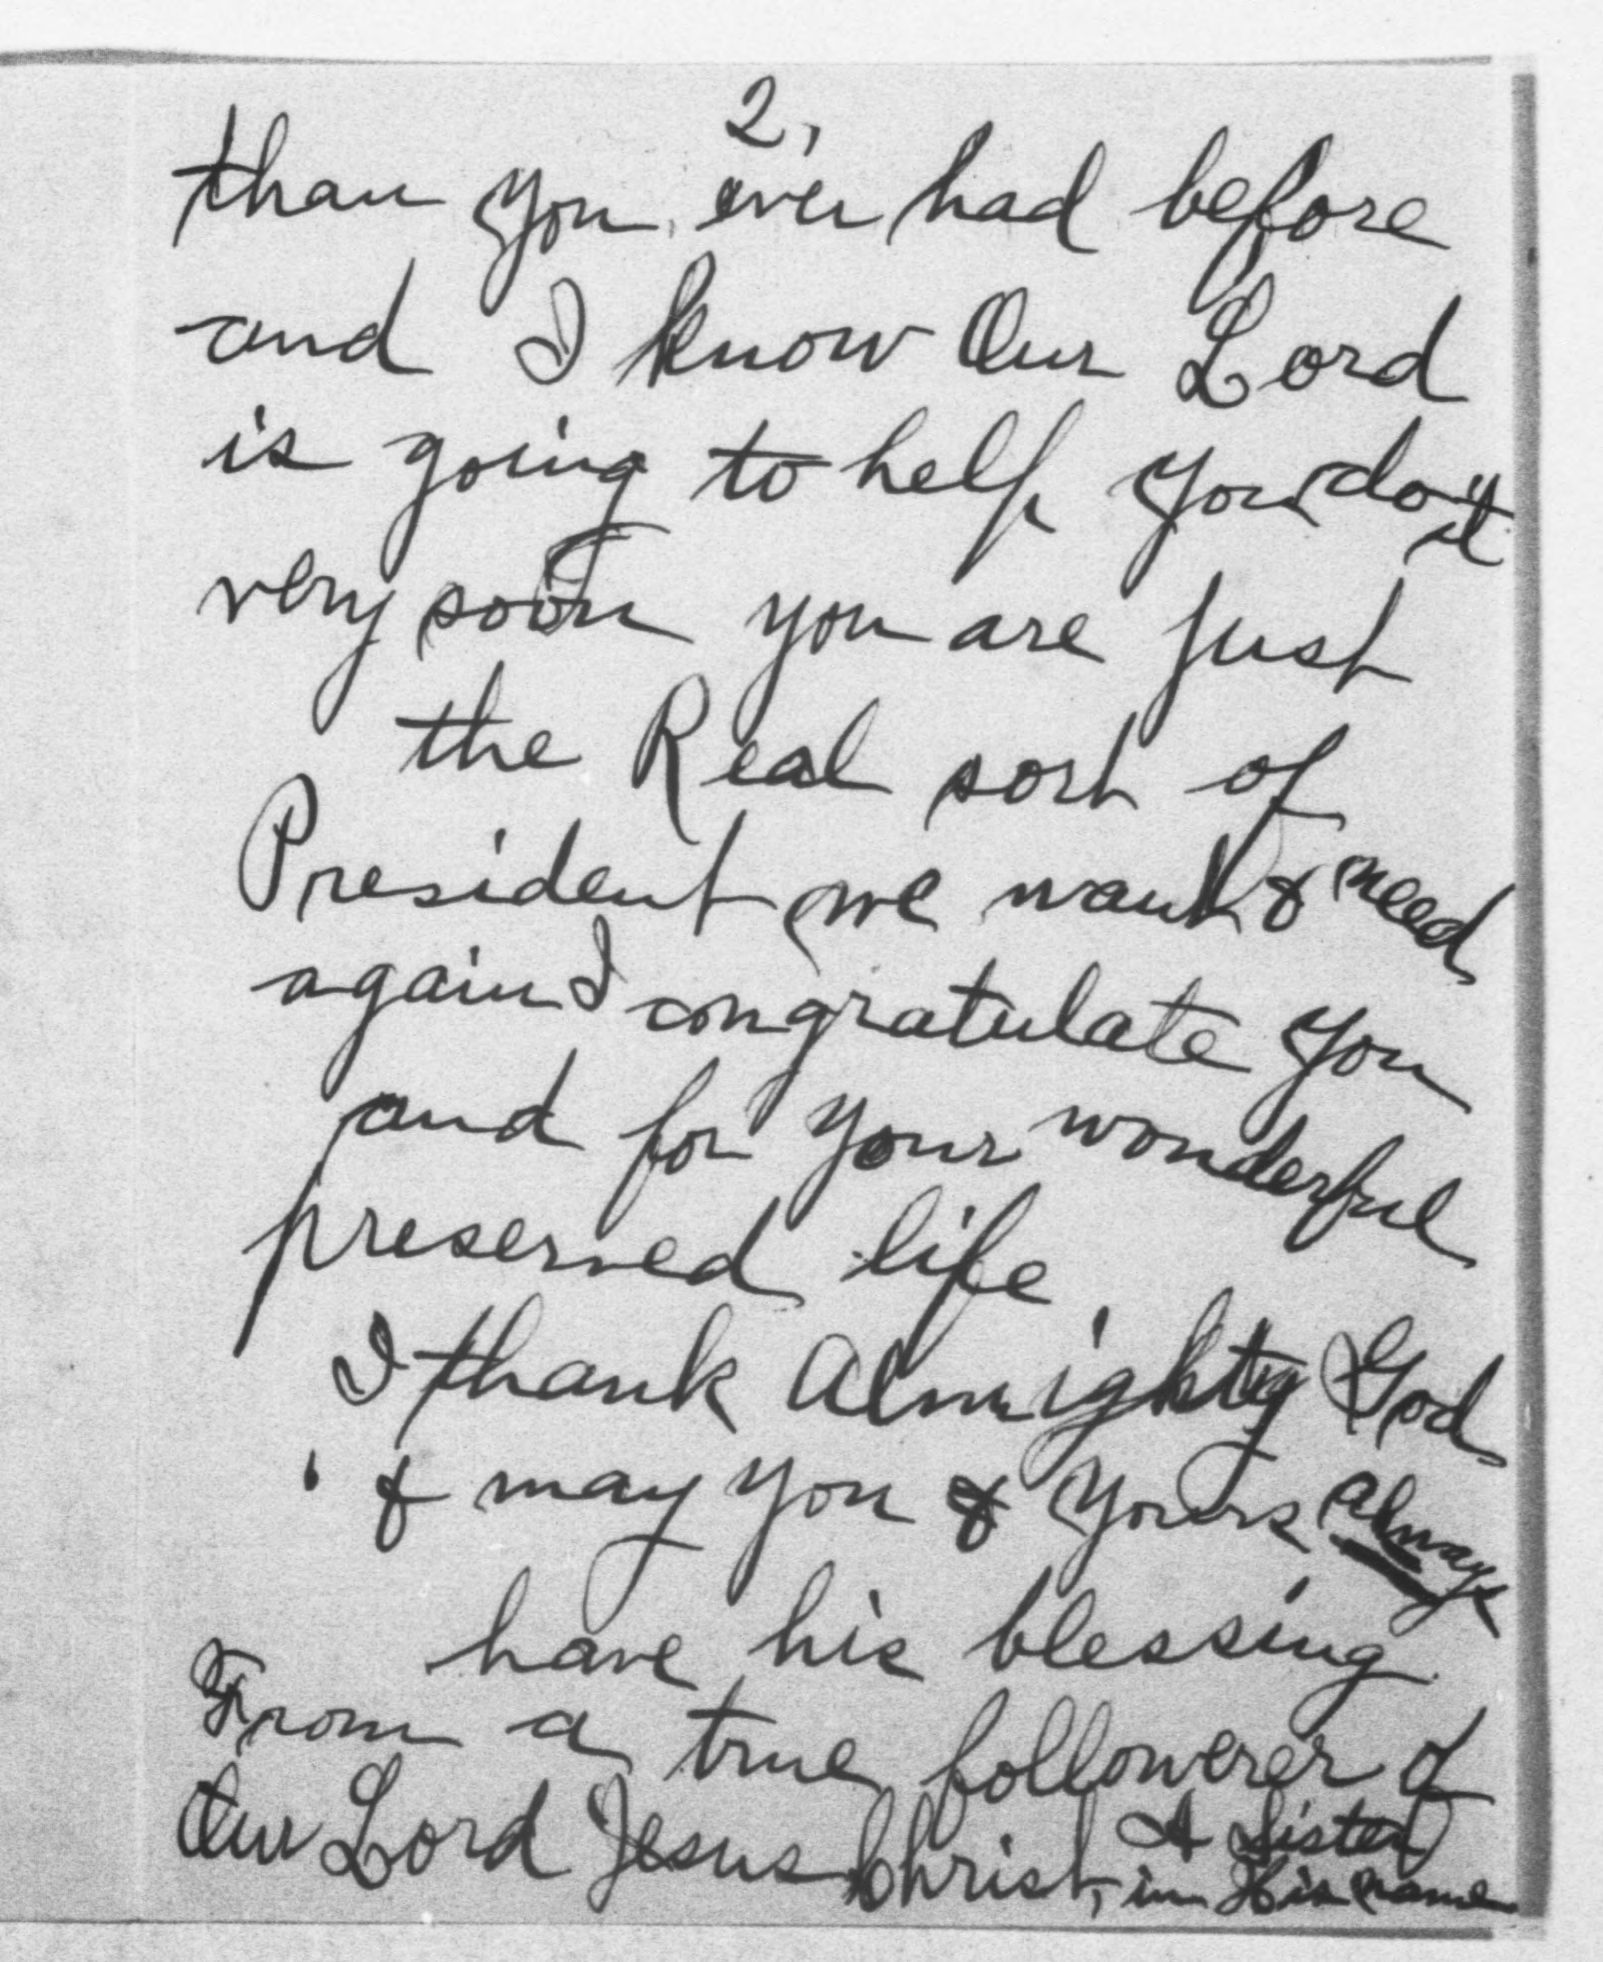 2,
than you ever had before
and I know Our Lord
is going to help you do it
very soon you are just
the Real sort of
President we want & need
again I congratulate you
and for your wonderful
preserved life
I thank Almighty God
& may you & yours always
have his blessing
From a true followerer of
Our Lord Jesus Christ,
A Sister
in His name